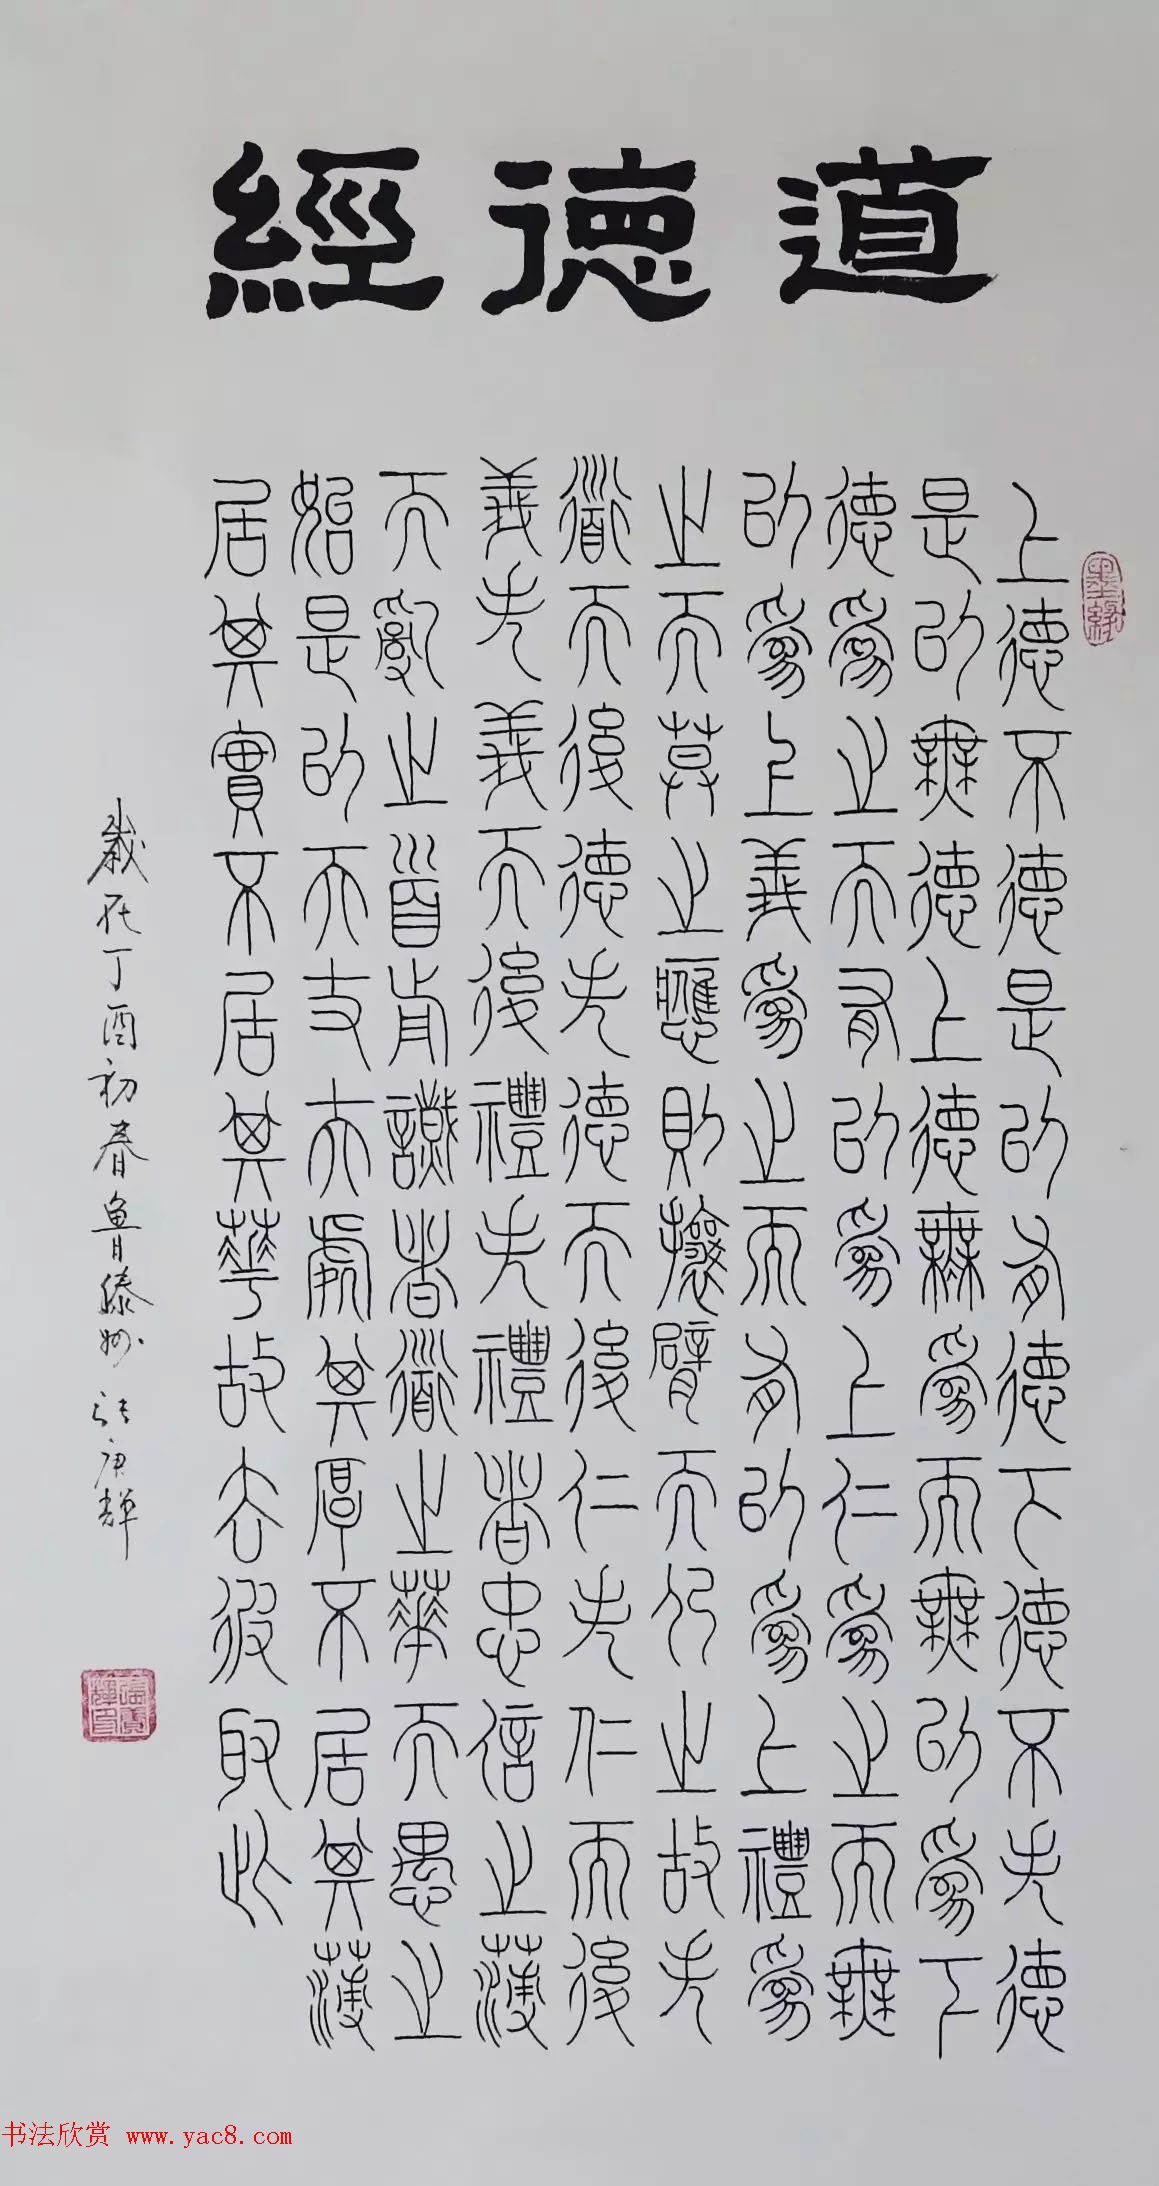 道德經
墨緣
上德不德是以有德下德不失德
是以無德上德無為而無以為下
德為之而有以為上仁為之而無
以為上義為之而有以為上禮為
之而莫之應則攘臂而仍之故失
道而後德失德而後仁失仁而後
義失義而後禮夫禮者忠信之薄
而亂之首前識者道之華而愚之
始是以大丈夫處其厚不居其薄
居其實不居其華故去彼取此
歲在丁酉初春魯滕州張庚輝
书法欣赏 www.yac8.com